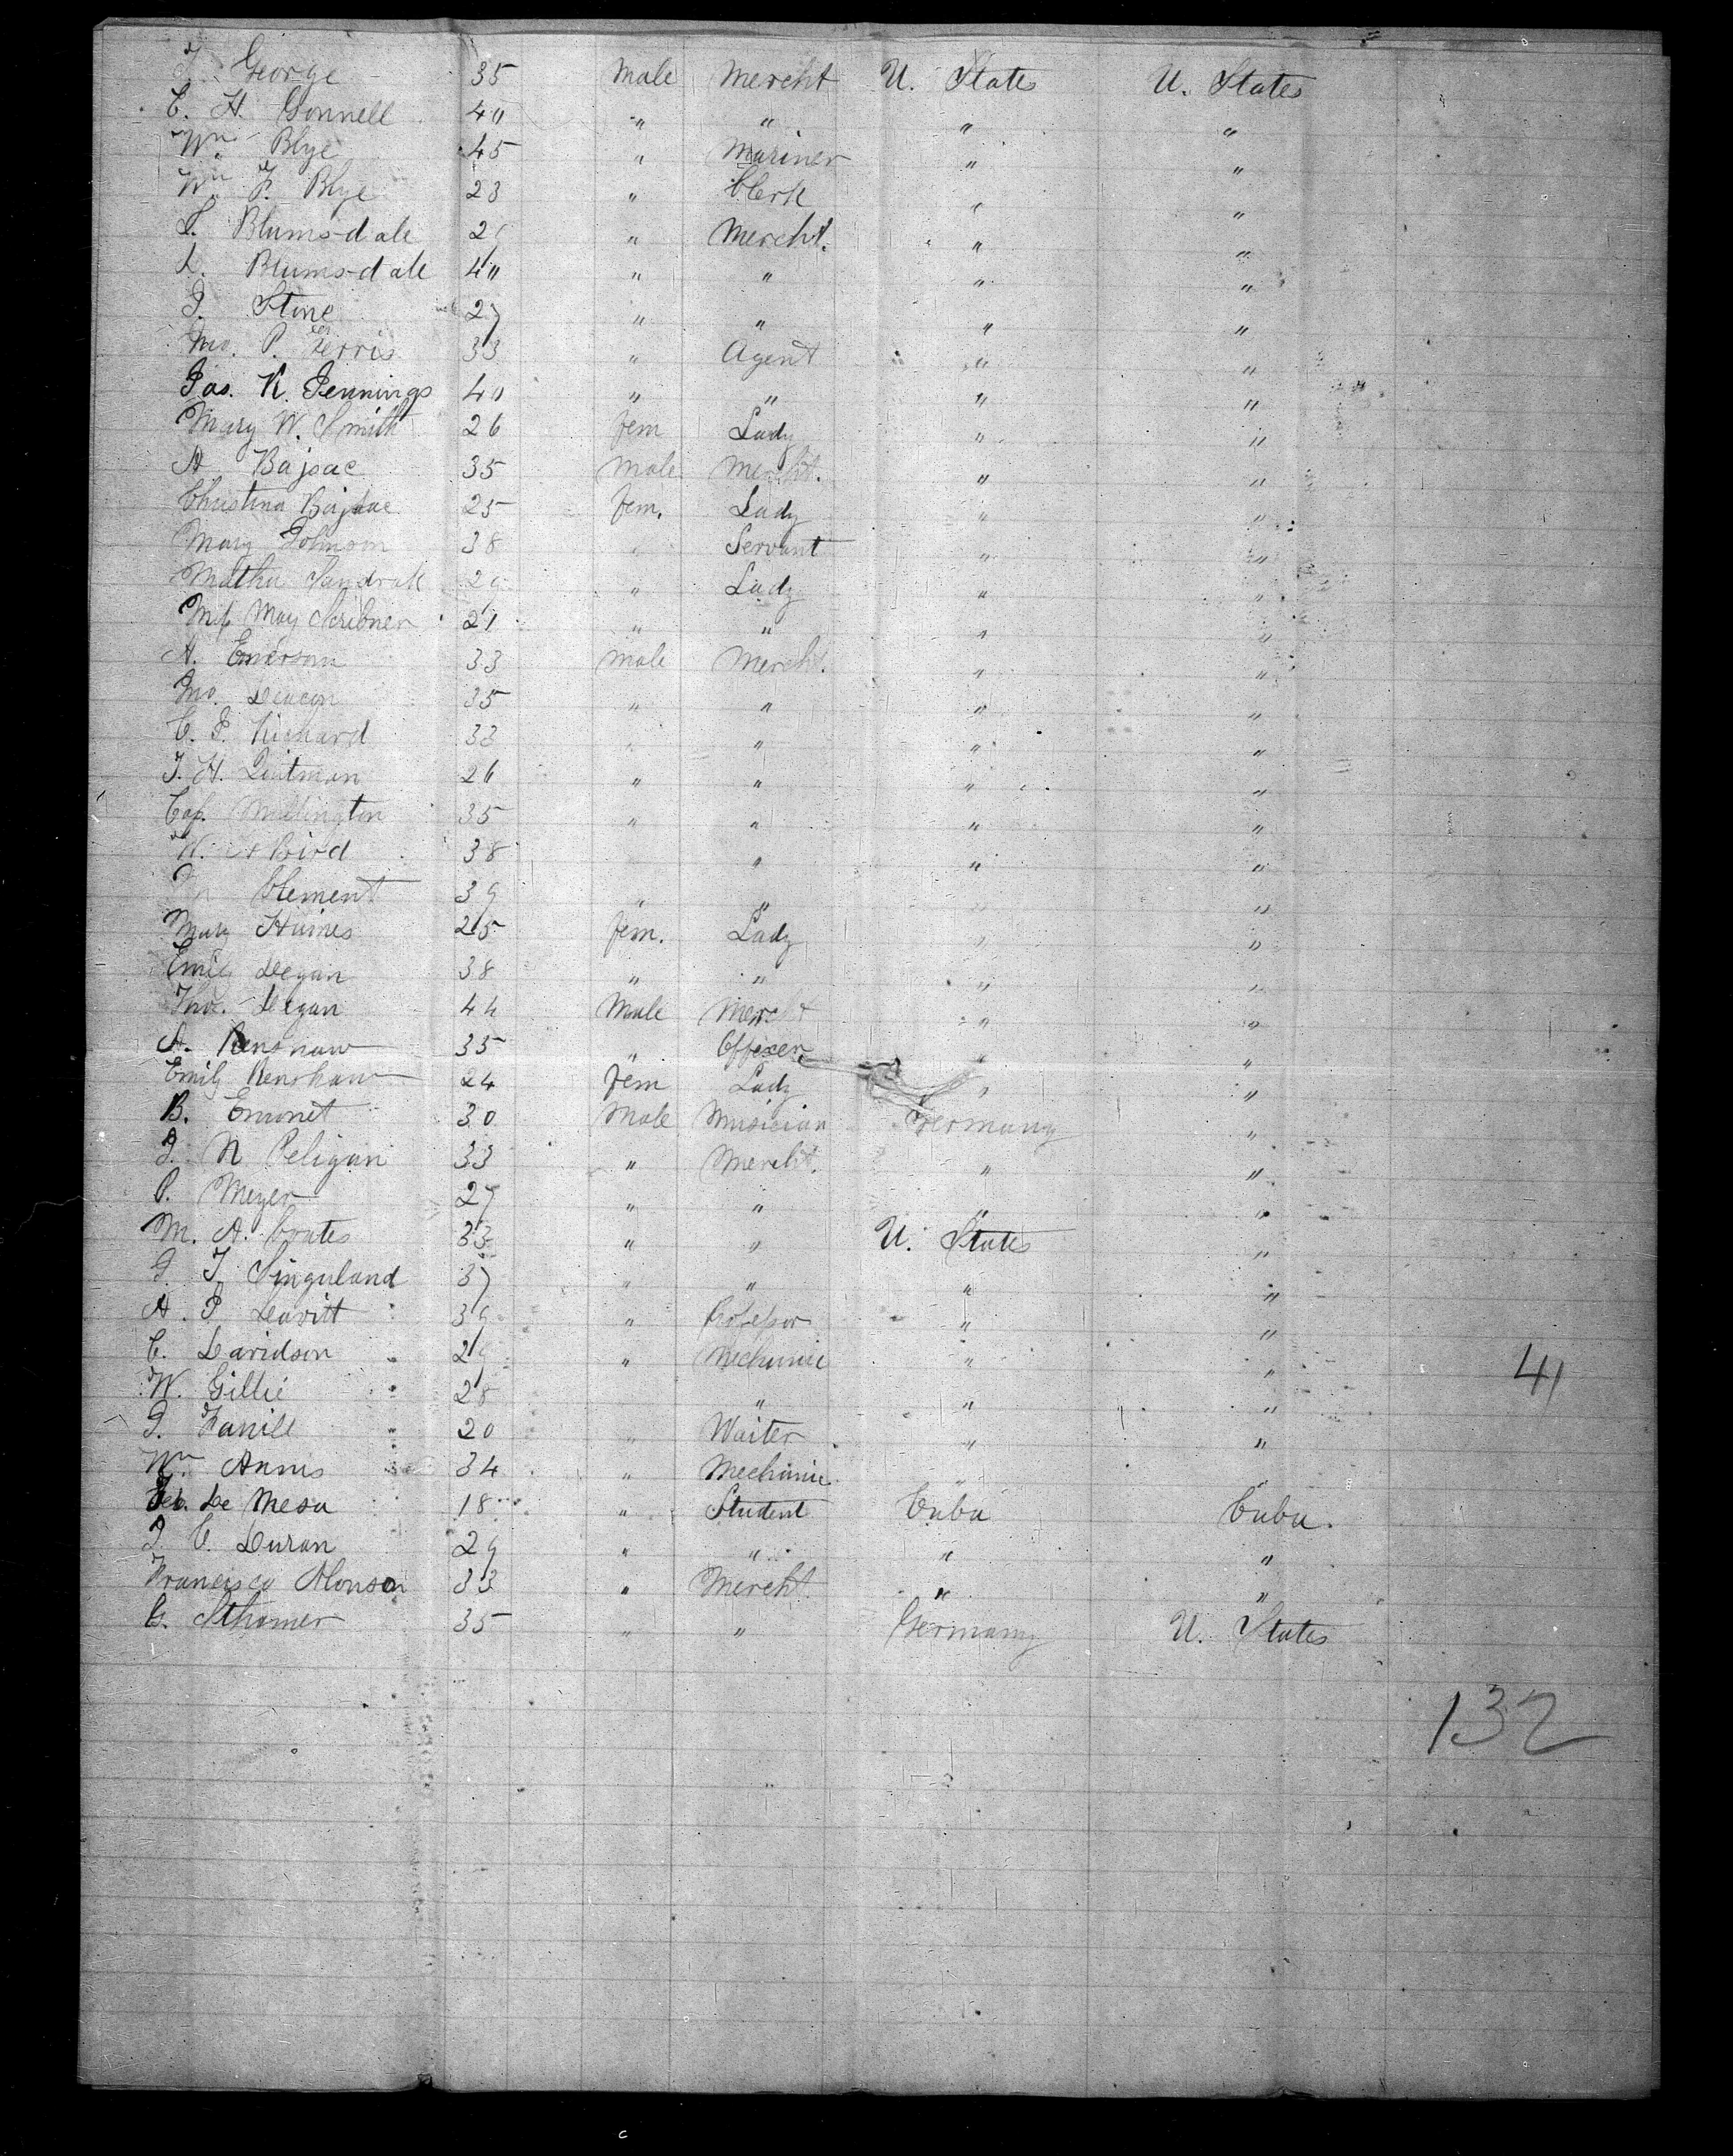 T. George 35 Male Mercht U. States U. States
C. H. Gonnell 40 " " " "
Wm Blye 45 " Mariner " "
Wm F. Blye 23 " Clerk " "
T. Blumsdale 2 " Mercht. " "
L. Blumsdale 40 " " " "
J. Stone 27 " " " "
Jno. P. Ferris 33 " Agent " "
Jas. K. Jennings 40 " " " "
Mary W. Smith 26 fem Lady " "
A Bajsac 35 Male Mercht. " "
Christina Bajsac 25 fem. Lady " "
Mary Johnson 38 " Servant " "
Matha 29 " Lady " "
Miſs May Scribner 21 " " " "
A. Emerson 33 Male Mercht. " "
Jno. Deacon 35 " " " "
C. P. Richard 33 " " " "
J. H. Quitman 26 " " " "
Cap. Millington 35 " " " "
W. A Bird 38 " " "
Clement 39 " " " "
Mary Haines 25 fem. Lady " "
Emily Degan 38 " " " "
Tho. Degan 44 Male Mercht " "
A. Renshaw 35 " Officer " "
Emily Renshaw 24 fem Lady " "
B. Emonet 30 Male Musician Germany "
J. N Peligan 33 " Mercht. " "
P. Meyer 27 " " " "
M. A. Coates 33 " " U. States "
G. T. Singuland 37 " " " "
A. P. Leavitt 39 " Profeſsor " "
C. Davidson 29 " Mechanic " "
W. Gillie 28 " " " "
J. Farrill 20 " Waiter " "
Wm Annis 34 " Mechanic " "
Feb. De Mesa 18 " Student Cuba Cuba.
J. C. Duran 29 " " " "
Francisco Alonson 33 " Mercht. " "
G. Sthamer 35 " " Germany U. States
41
132